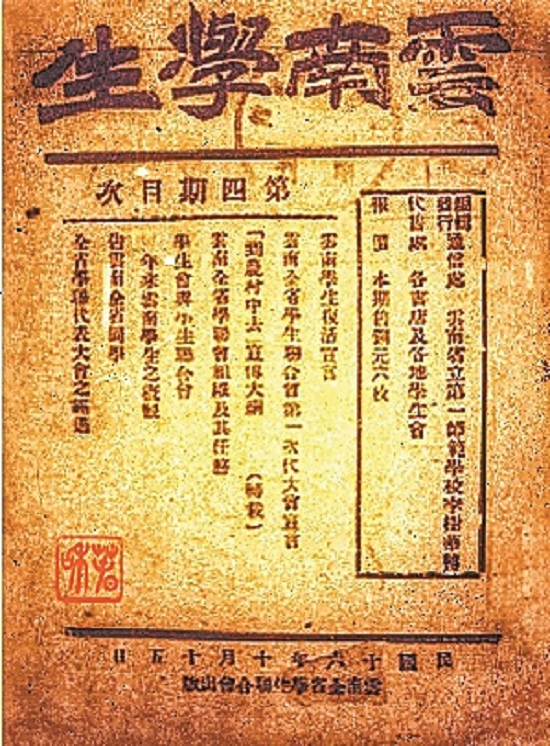 雲南學生
第四期目次
編輯
發行
通信處 雲南省立第一師範學校李
代售處 各書店及各地學生會
報價 本期售銅元六枚
雲南學生復活宣言
雲南全省學生聯合會第一次代大會宣言
「到農村中去」宣傳大綱 (轉載)
雲南全省學聯會組織及其任務
學生會與學生聯合會
一年來雲南學生之
告雲南全省同學
全省學聯代表大會之經過
民國十六年十月十五日
雲南全省學生聯合會出版